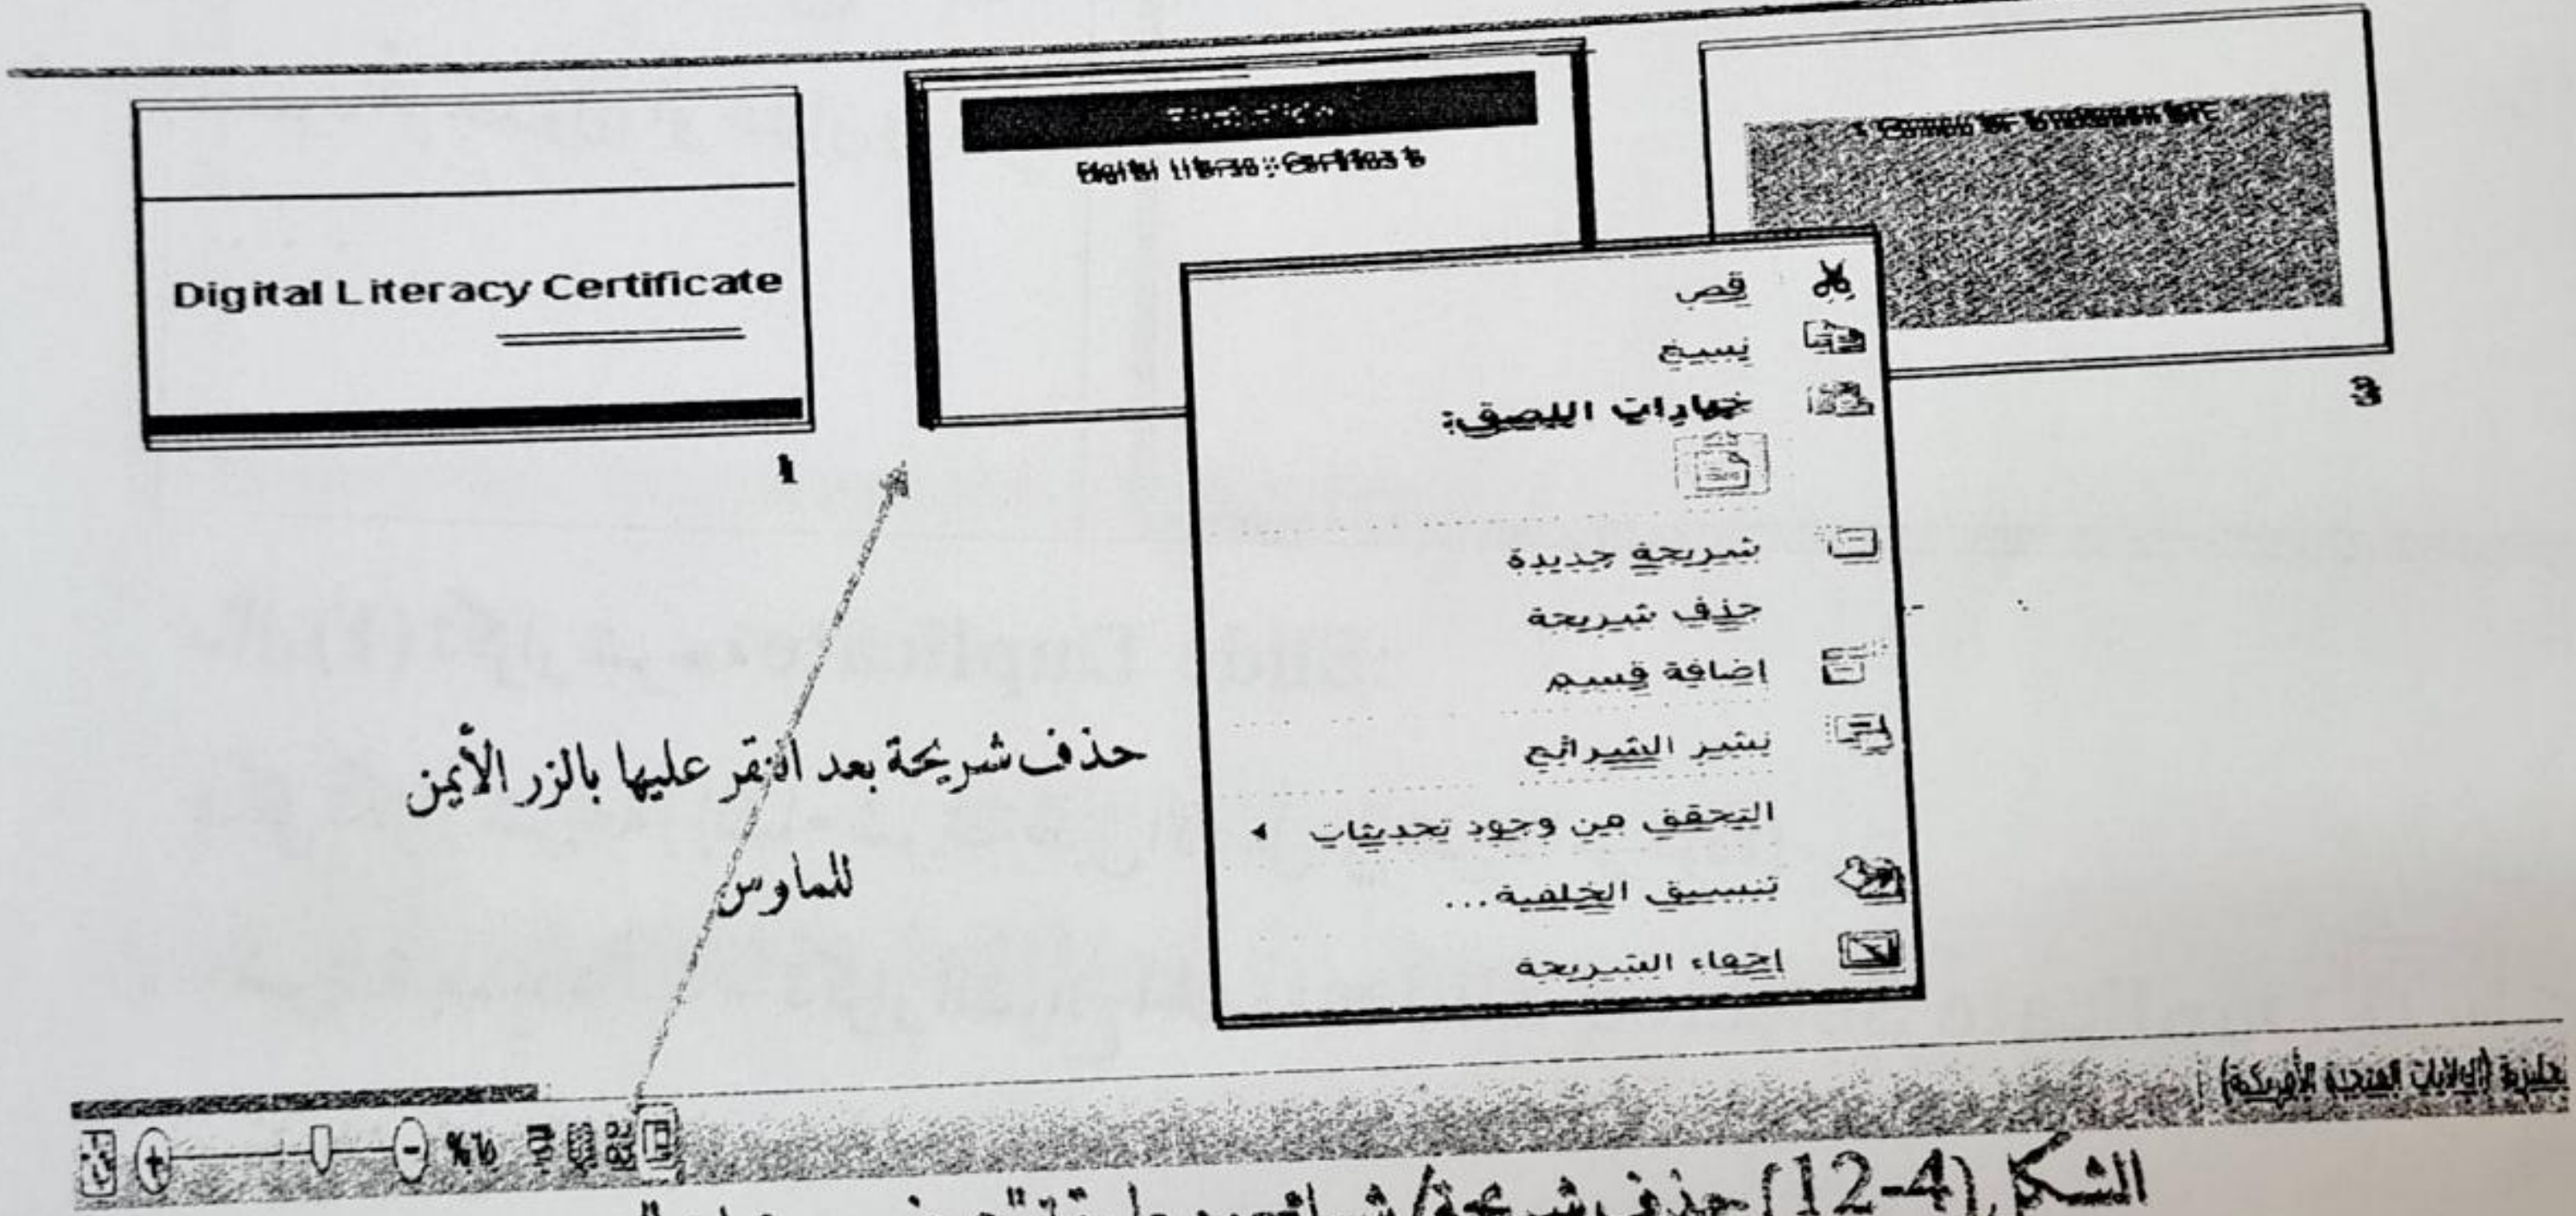 Digital Literacy Certificate
1
3
قص
نسخ
خيارات اللصق:
شريحة جديدة
حذف شريحة
إضافة قسم
نشر الشرائح
التحقق من وجود تحديثات
تنسيق الخلفية...
إخفاء الشريحة
حذف شريحة بعد النقر عليها بالزر الأيمن
للماوس
(الولايات المتحدة الأمريكية)
الشكل (4-12) حذف شريحة/شرائح